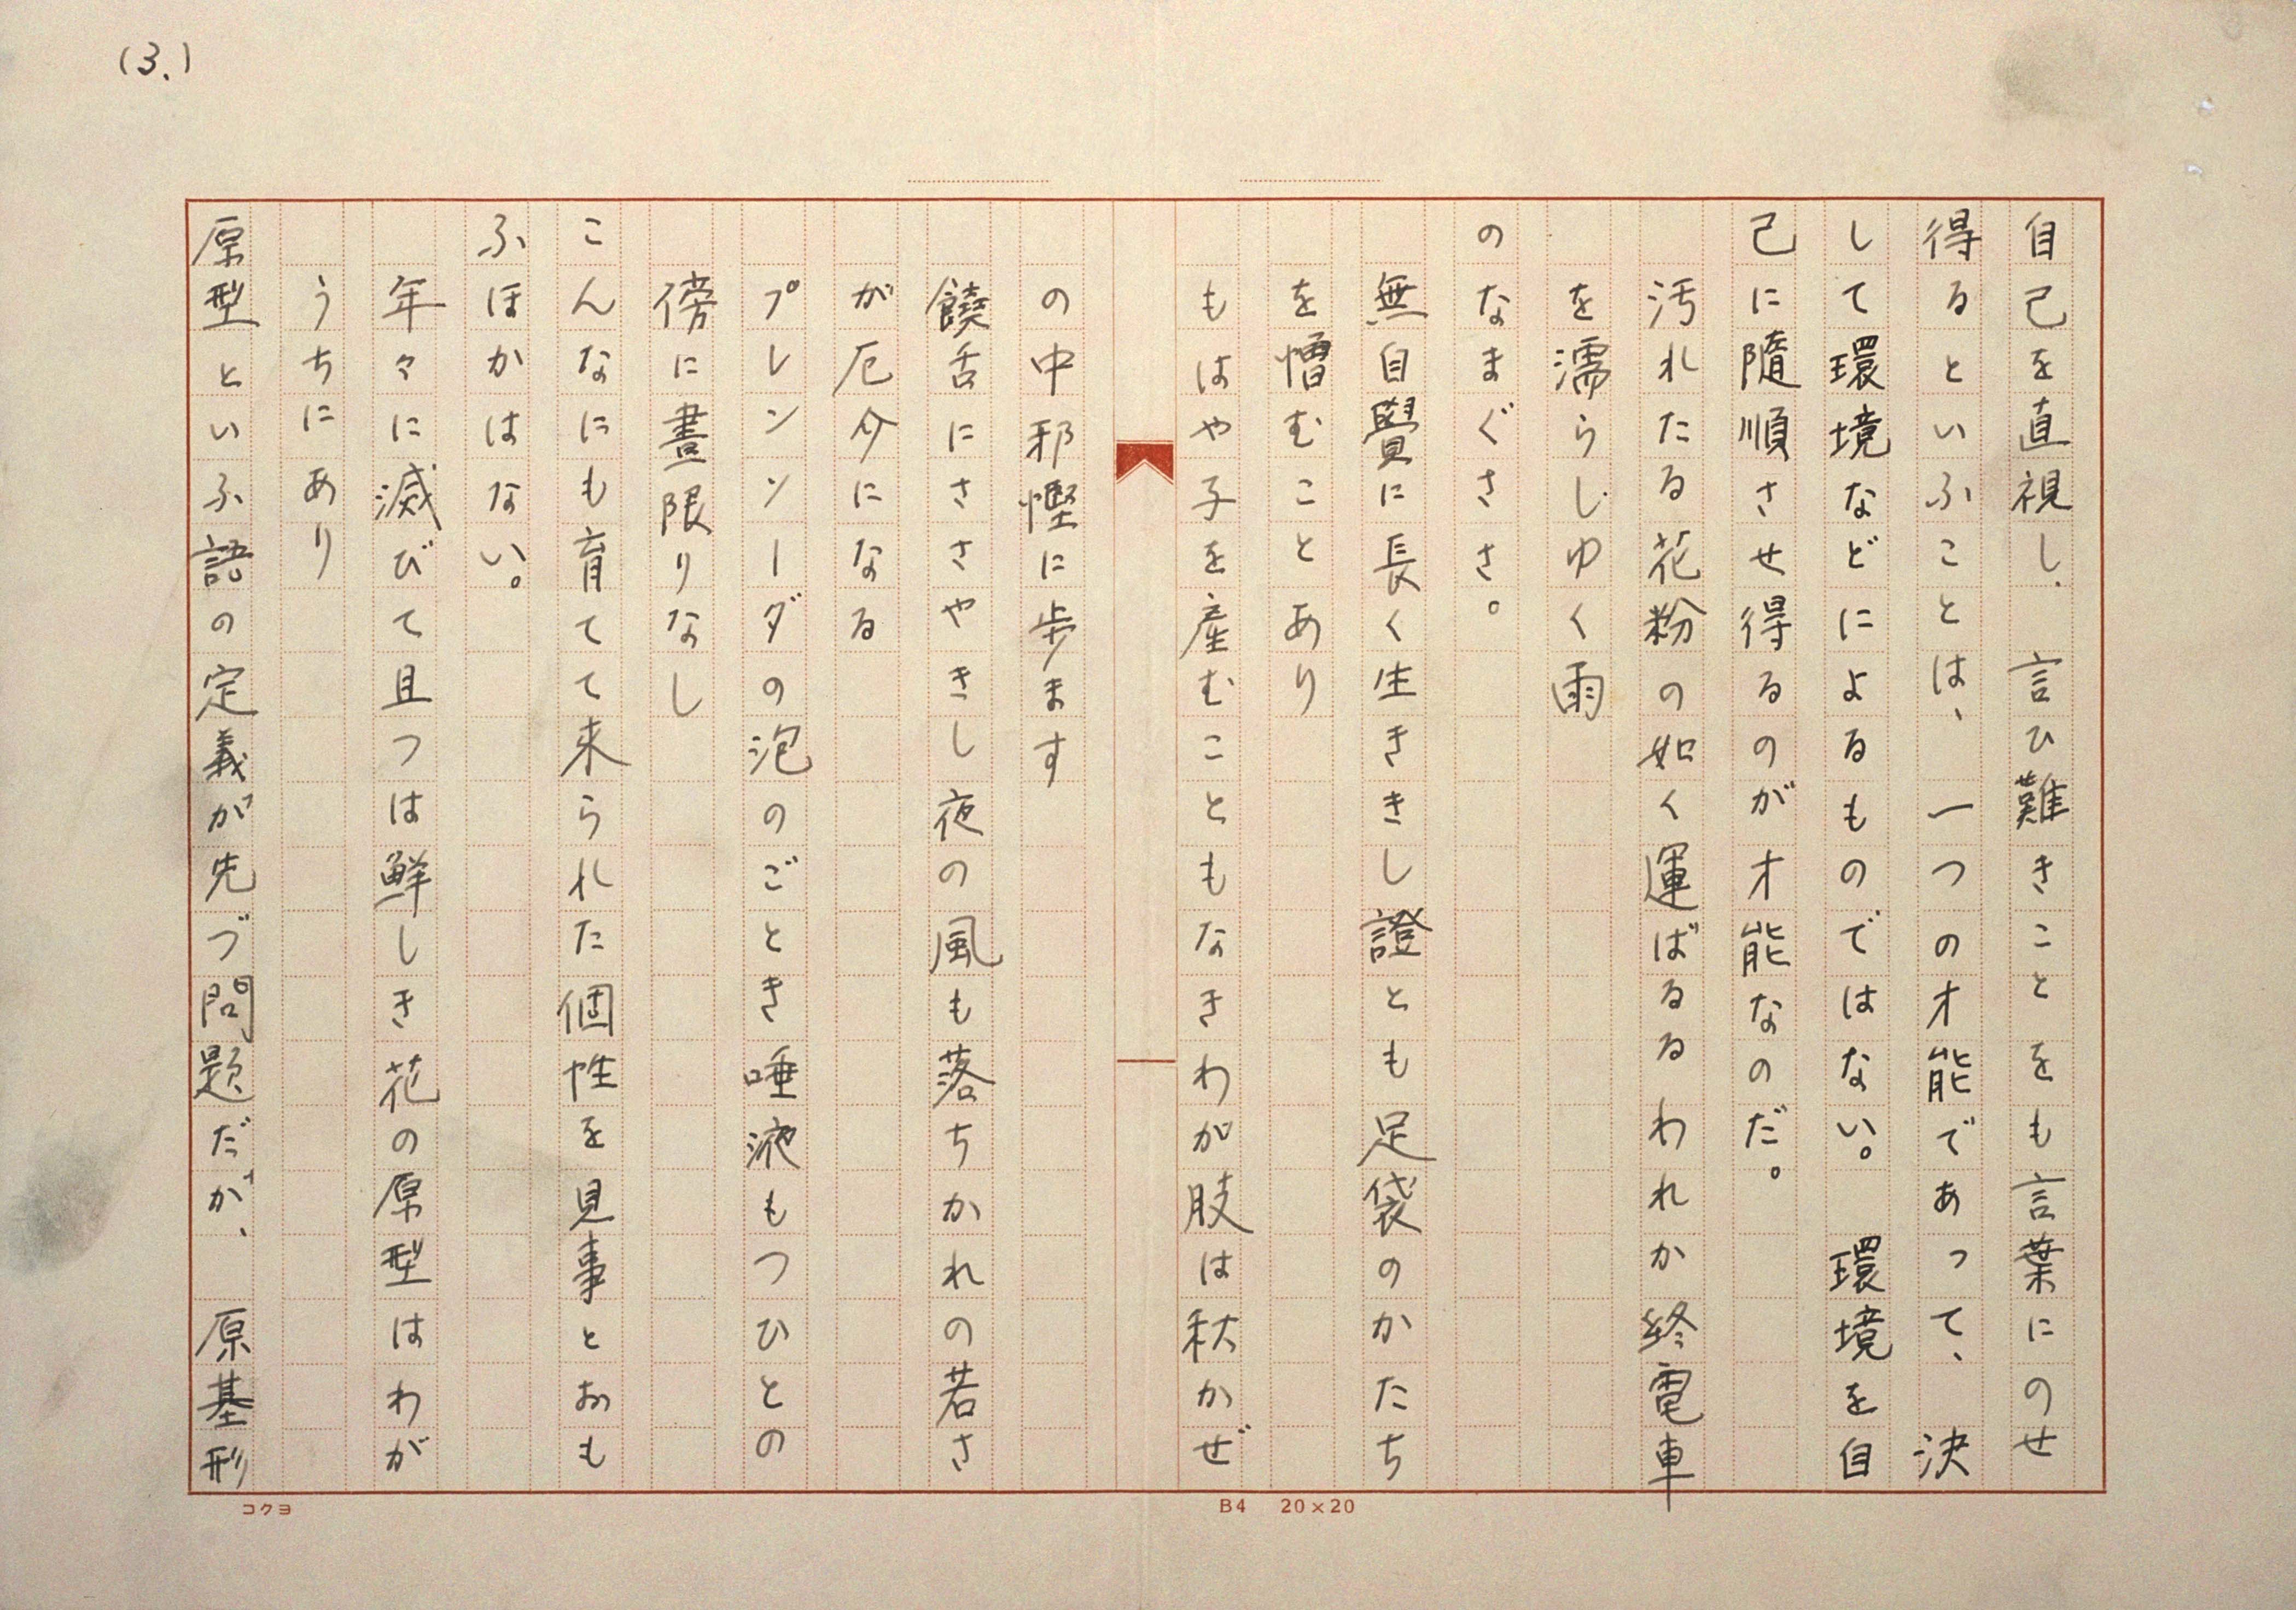 (3.)
自己を直視し、言ひ難きことをも言葉にのせ
得るといふことは、一つの才能であって、決
して環境などによるものではない。環境を自
己に隨順させ得るのが才能なのだ。
汚れたる花粉の如く運ばるるわれか終電車
を濡らしゆく雨
のなまぐささ。
無自覺に長く生ききし證とも足袋のかたち
を憎むことあり
もはや子を産むこともなきわが肢は秋かぜ
の中邪慳に歩ます
饒舌にささやきし夜の風も落ちかれの若さ
が厄介になる
プレンソーダの泡のごとき唾液もつひとの
傍に晝限りなし
こんなにも育てて来られた個性を見事とおも
ふほかはない。
年々に滅びて且つは鮮しき花の原型はわが
うちにあり
原型といふ語の定義が先づ問題だが、原基形
コクヨ
B4 20×20